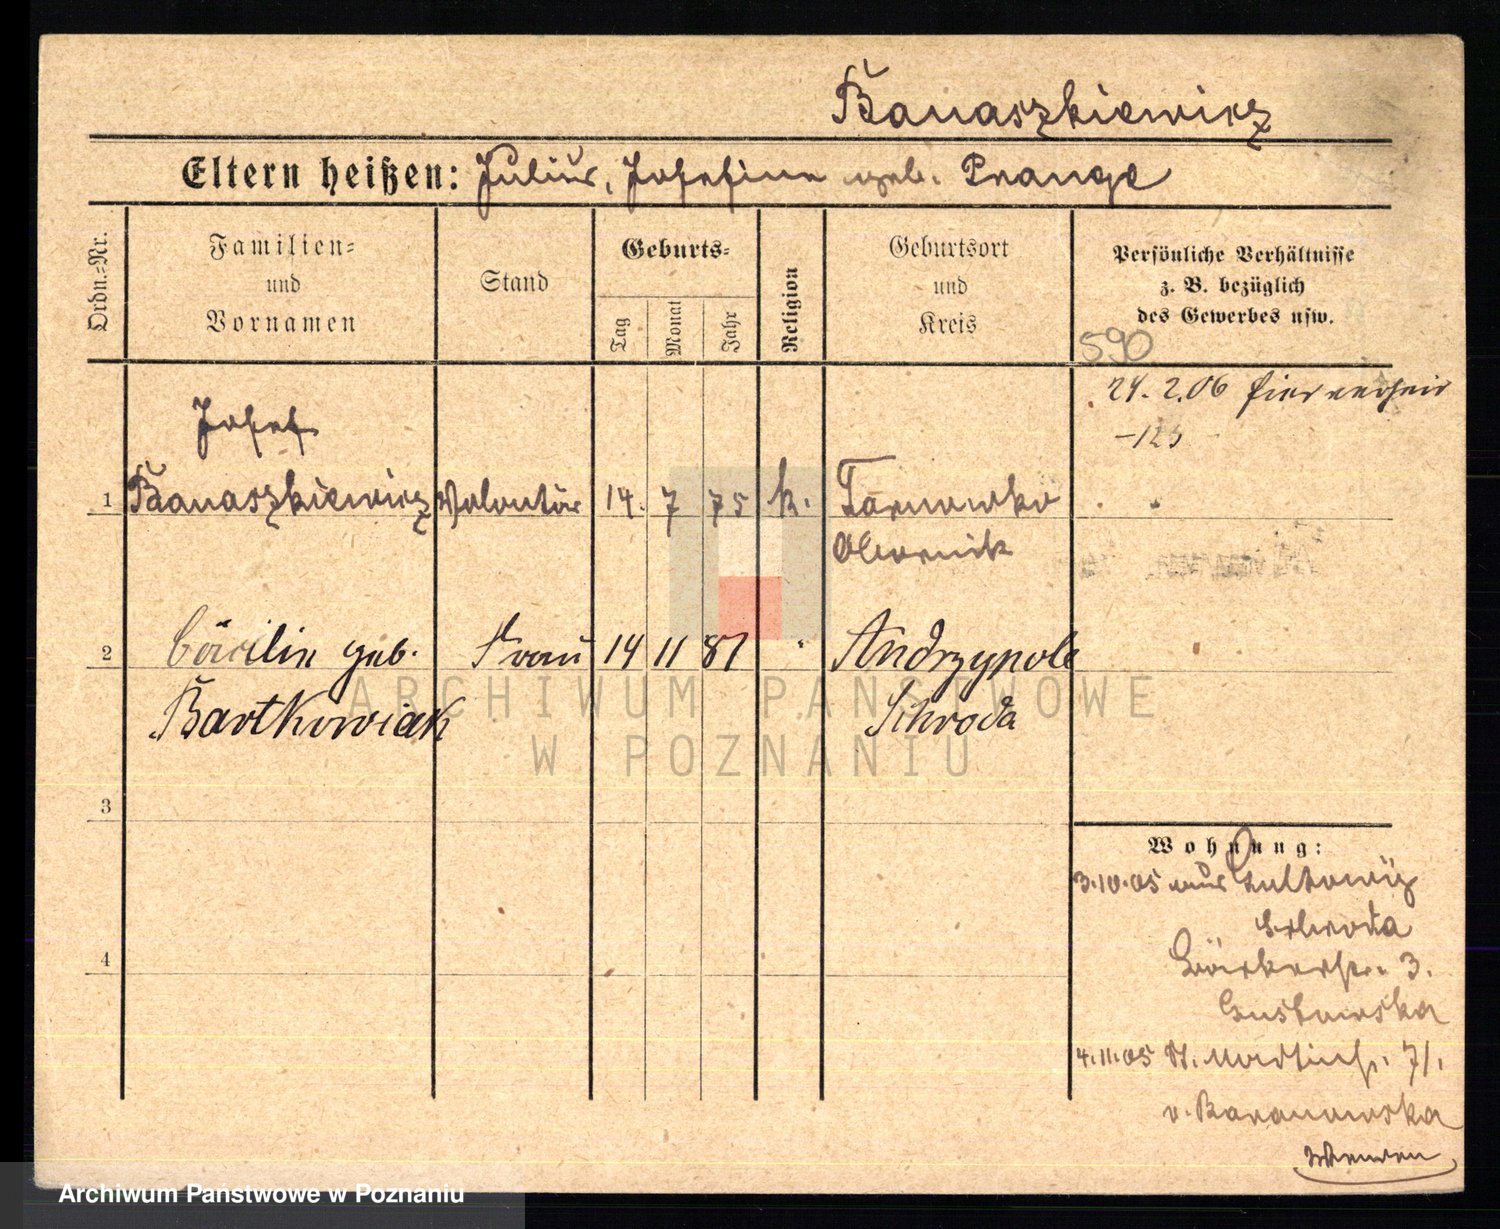 Banaszkiewicz
Eltern heißen: Julius, Josefine geb. Prange
Ordn.=Nr.
Familien=
und
Vornamen
Stand
Geburts=
Tag
Monat
Jahr
Religion
Geburtsort
und
Kreis
Persönliche Verhältnisse
z. B. bezüglich
des Gewerbes usw.
590
24. 2. 06 hier verheir
-123
Josef
1 Banaszkiewicz Volontär 14. 7 75 k. Tarnowko
Obornik
2 Cäcilie geb. Frau 14 11 81 " Andrzypole
Bartkowiak Schroda
3
4
Wohnung:
3.10.05 aus Gultowy
Schroda
Bäckerstr. 3.
Gustowska
4.11.05 St. Martinstr. 71.
v. Baranowska
ARCHIWUM PAŃSTWOWE
W POZNANIU
Archiwum Państwowe w Poznaniu